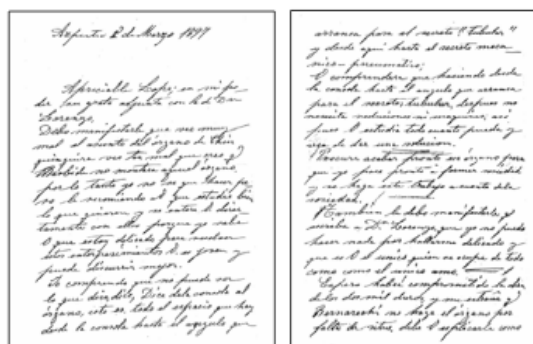 Azpeitia 2 de Marzo 1897
Apreciable Lope; en mi po-
der tan grata adjunta con la de Don
Lorenzo.
Debo manifestarle que veo muy
mal el asunto del órgano de Chin
quinquira veo tan mal que creo q
no montara aquel órgano,
por lo tanto yo no se que hacer pe
ro le recomiendo al que estudie bien
lo que quieren y se entere V. direc
tamente con ellos porque yo vale
V que estoy delicado para
V. es joven y
puede discurrir mejor.
Se comprende que no puede ser
lo que dice, Dice de la consola al
órgano, esto es, todo el espacio que hay
desde la consola hasta el angulo que
arranca para el secreto "tubular"
y desde aqui hasta el secreto meca_
nico-pneumatico;
V comprendera que haciendo desde
la consola hasta el angulo que arranca
para el secreto tubular, despues no
necesita reductores ni maquinas; asi
pues V estudie todo cuanto pueda y
vea de dar una solucion.
Procure acabar pronto ese órgano para
que yo pase pronto a formar sociedad
y se haga este trabajo a cuenta de la
sociedad.
Tambien le debo manifestarle q
escriba a Dn Lorenzo que yo no puedo
hacer nada por hallarme delicado y
que es V. el unico quien se ocupa de todo
como el unico amo.
haber comprometido la obra
de los dos mil duros y me extraña q
Bernareshi no haga el órgano por
falta de , debe V. explicarle como